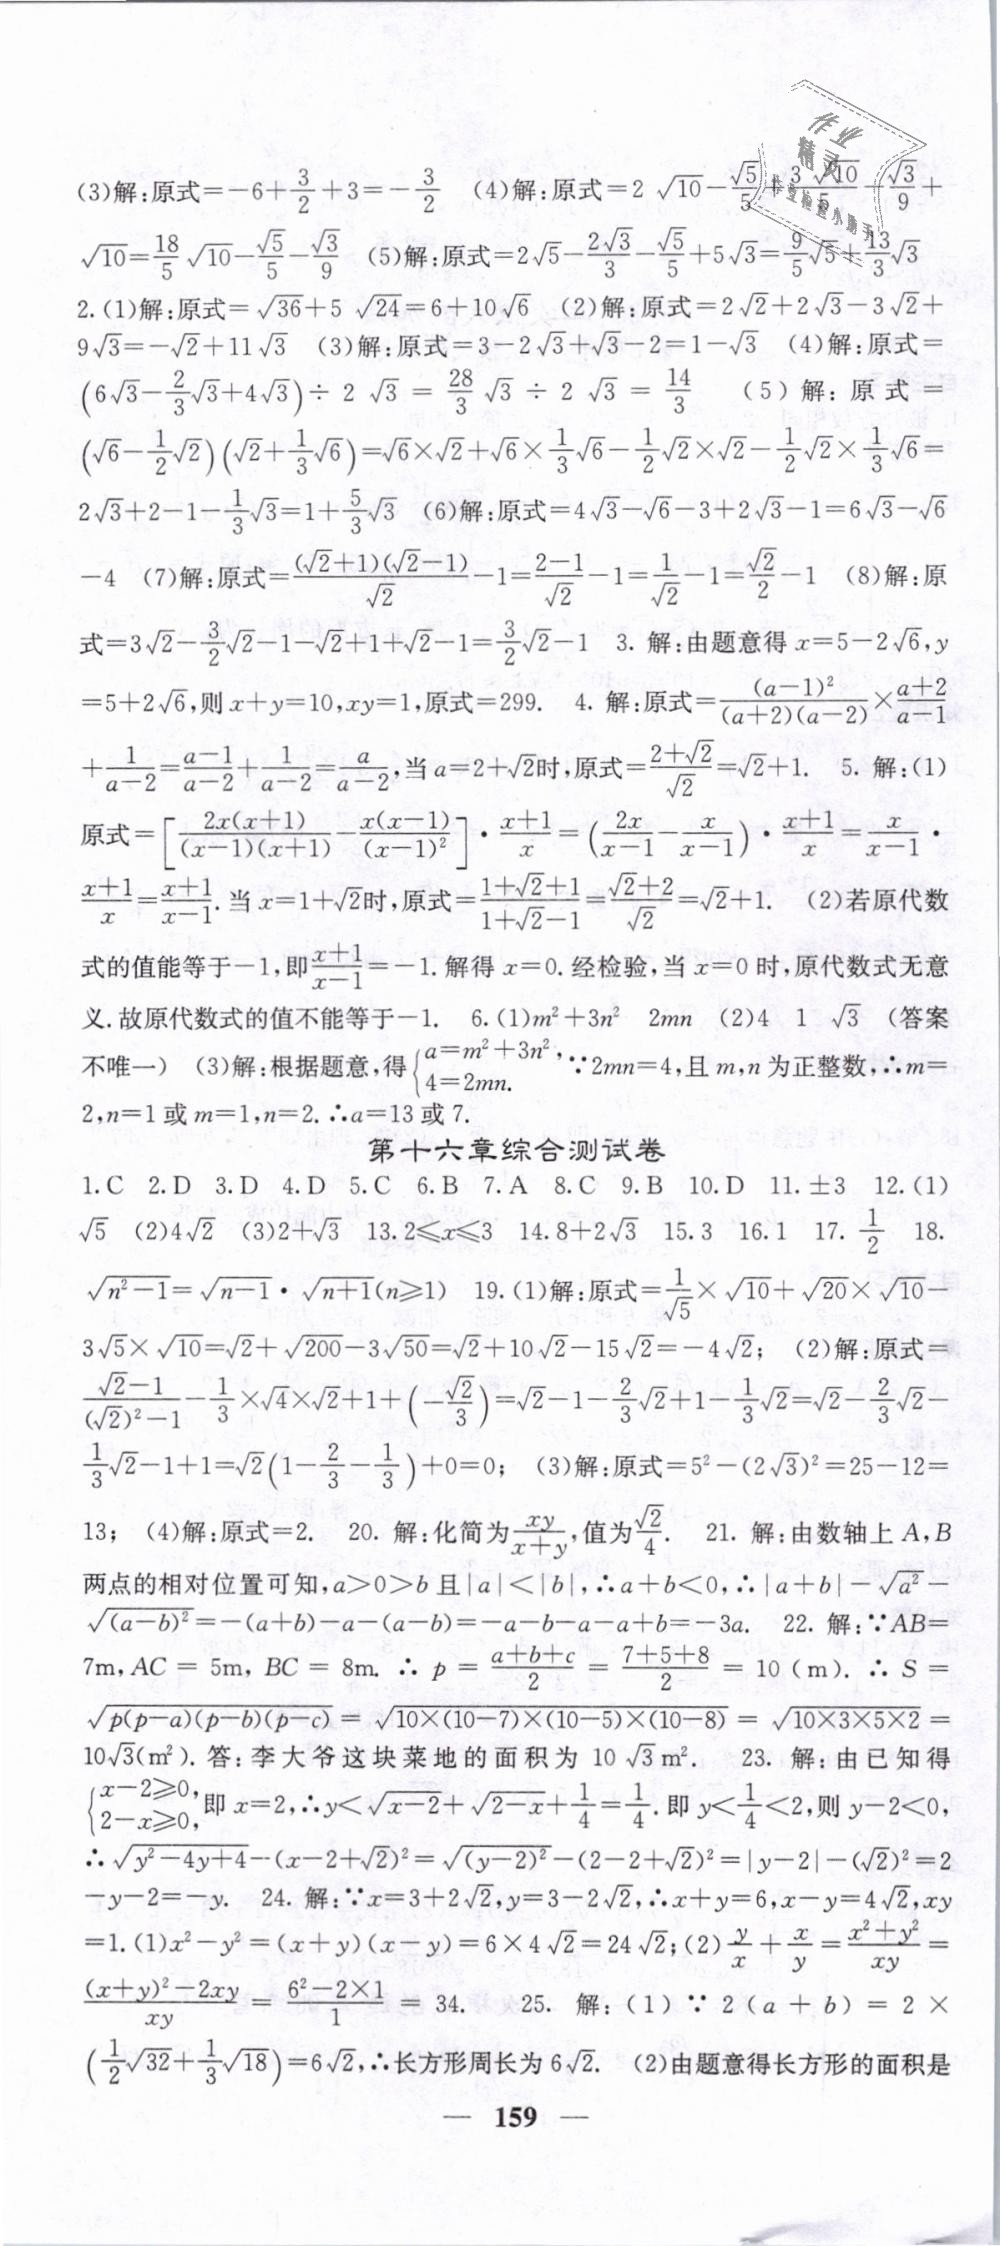 作业
精灵
作业检查小助手
(3)解:原式=-6+3/2+3=-3/2 (4)解:原式=2√10-√5/5+3√10/5+√3/9+
√10=18/5√10-√5/5-√3/9 (5)解:原式=2√5-2√3/3-√5/5+5√3=9/5√5+13/3√3
2.(1)解:原式=√36+5√24=6+10√6 (2)解:原式=2√2+2√3-3√2+
9√3=-√2+11√3 (3)解:原式=3-2√3+√3-2=1-√3 (4)解:原式=
(6√3-2/3√3+4√3)÷2√3=28/3√3÷2√3=14/3 (5)解:原式=
(√6-1/2√2)(√2+1/3√6)=√6×√2+√6×1/3√6-1/2√2×√2-1/2√2×1/3√6=
2√3+2-1-1/3√3=1+5/3√3 (6)解:原式=4√3-√6-3+2√3-1=6√3-√6
-4 (7)解:原式=(√2+1)(√2-1)/√2-1=2-1/√2-1=1/√2-1=√2/2-1 (8)解:原
式=3√2-3/2√2-1-√2+1+√2-1=3/2√2-1 3. 解:由题意得x=5-2√6,y
=5+2√6,则x+y=10,xy=1,原式=299. 4. 解:原式=(a-1)²/(a+2)(a-2)×a+2/a-1
+1/a-2=a-1/a-2+1/a-2=a/a-2,当a=2+√2时,原式=2+√2/√2=√2+1. 5. 解:(1)
原式=[2x(x+1)/(x-1)(x+1)-x(x-1)/(x-1)²]·x+1/x=(2x/x-1-x/x-1)·x+1/x=x/x-1·
x+1/x=x+1/x-1.当x=1+√2时,原式=1+√2+1/1+√2-1=√2+2/√2=√2+1. (2)若原代数
式的值能等于-1,即x+1/x-1=-1.解得x=0.经检验,当x=0时,原代数式无意
义.故原代数式的值不能等于-1. 6.(1)m²+3n² 2mn (2)4 1 √3 (答案
不唯一) (3)解:根据题意,得{a=m²+3n²,4=2mn.∵2mn=4,且m,n为正整数,∴m=
2,n=1或m=1,n=2.∴a=13或7.
第十六章综合测试卷
1.C 2.D 3.D 4.D 5.C 6.B 7.A 8.C 9.B 10.D 11.±3 12.(1)
√5 (2)4√2 (3)2+√3 13.2≤x≤3 14.8+2√3 15.3 16.1 17.1/2 18.
√n²-1=√n-1·√n+1(n≥1) 19.(1)解:原式=1/√5×√10+√20×√10-
3√5×√10=√2+√200-3√50=√2+10√2-15√2=-4√2; (2)解:原式=
√2-1/(√2)²-1-1/3×√4×√2+1+(-√2/3)=√2-1-2/3√2+1-1/3√2=√2-2/3√2-
1/3√2-1+1=√2(1-2/3-1/3)+0=0; (3)解:原式=5²-(2√3)²=25-12=
13; (4)解:原式=2. 20. 解:化简为xy/x+y,值为√2/4. 21. 解:由数轴上A,B
两点的相对位置可知,a>0>b且|a|<|b|,∴a+b<0,∴|a+b|-√a²-
√(a-b)²=-(a+b)-a-(a-b)=-a-b-a-a+b=-3a. 22. 解:∵AB=
7m,AC=5m,BC=8m.∴p=a+b+c/2=7+5+8/2=10(m).∴S=
√p(p-a)(p-b)(p-c)=√10×(10-7)×(10-5)×(10-8)=√10×3×5×2=
10√3(m²).答:李大爷这块菜地的面积为10√3m². 23. 解:由已知得
{x-2≥0,2-x≥0,即x=2,∴y<√x-2+√2-x+1/4=1/4.即y<1/4<2,则y-2<0,
∴√y²-4y+4-(x-2+√2)²=√(y-2)²-(2-2+√2)²=|y-2|-(√2)²=2
-y-2=-y. 24. 解:∵x=3+2√2,y=3-2√2,∴x+y=6,x-y=4√2,xy
=1.(1)x²-y²=(x+y)(x-y)=6×4√2=24√2;(2)y/x+x/y=x²+y²/xy=
(x+y)²-2xy/xy=6²-2×1/1=34. 25. 解:(1)∵2(a+b)=2×
(1/2√32+1/3√18)=6√2,∴长方形周长为6√2. (2)由题意得长方形的面积是
— 159 —